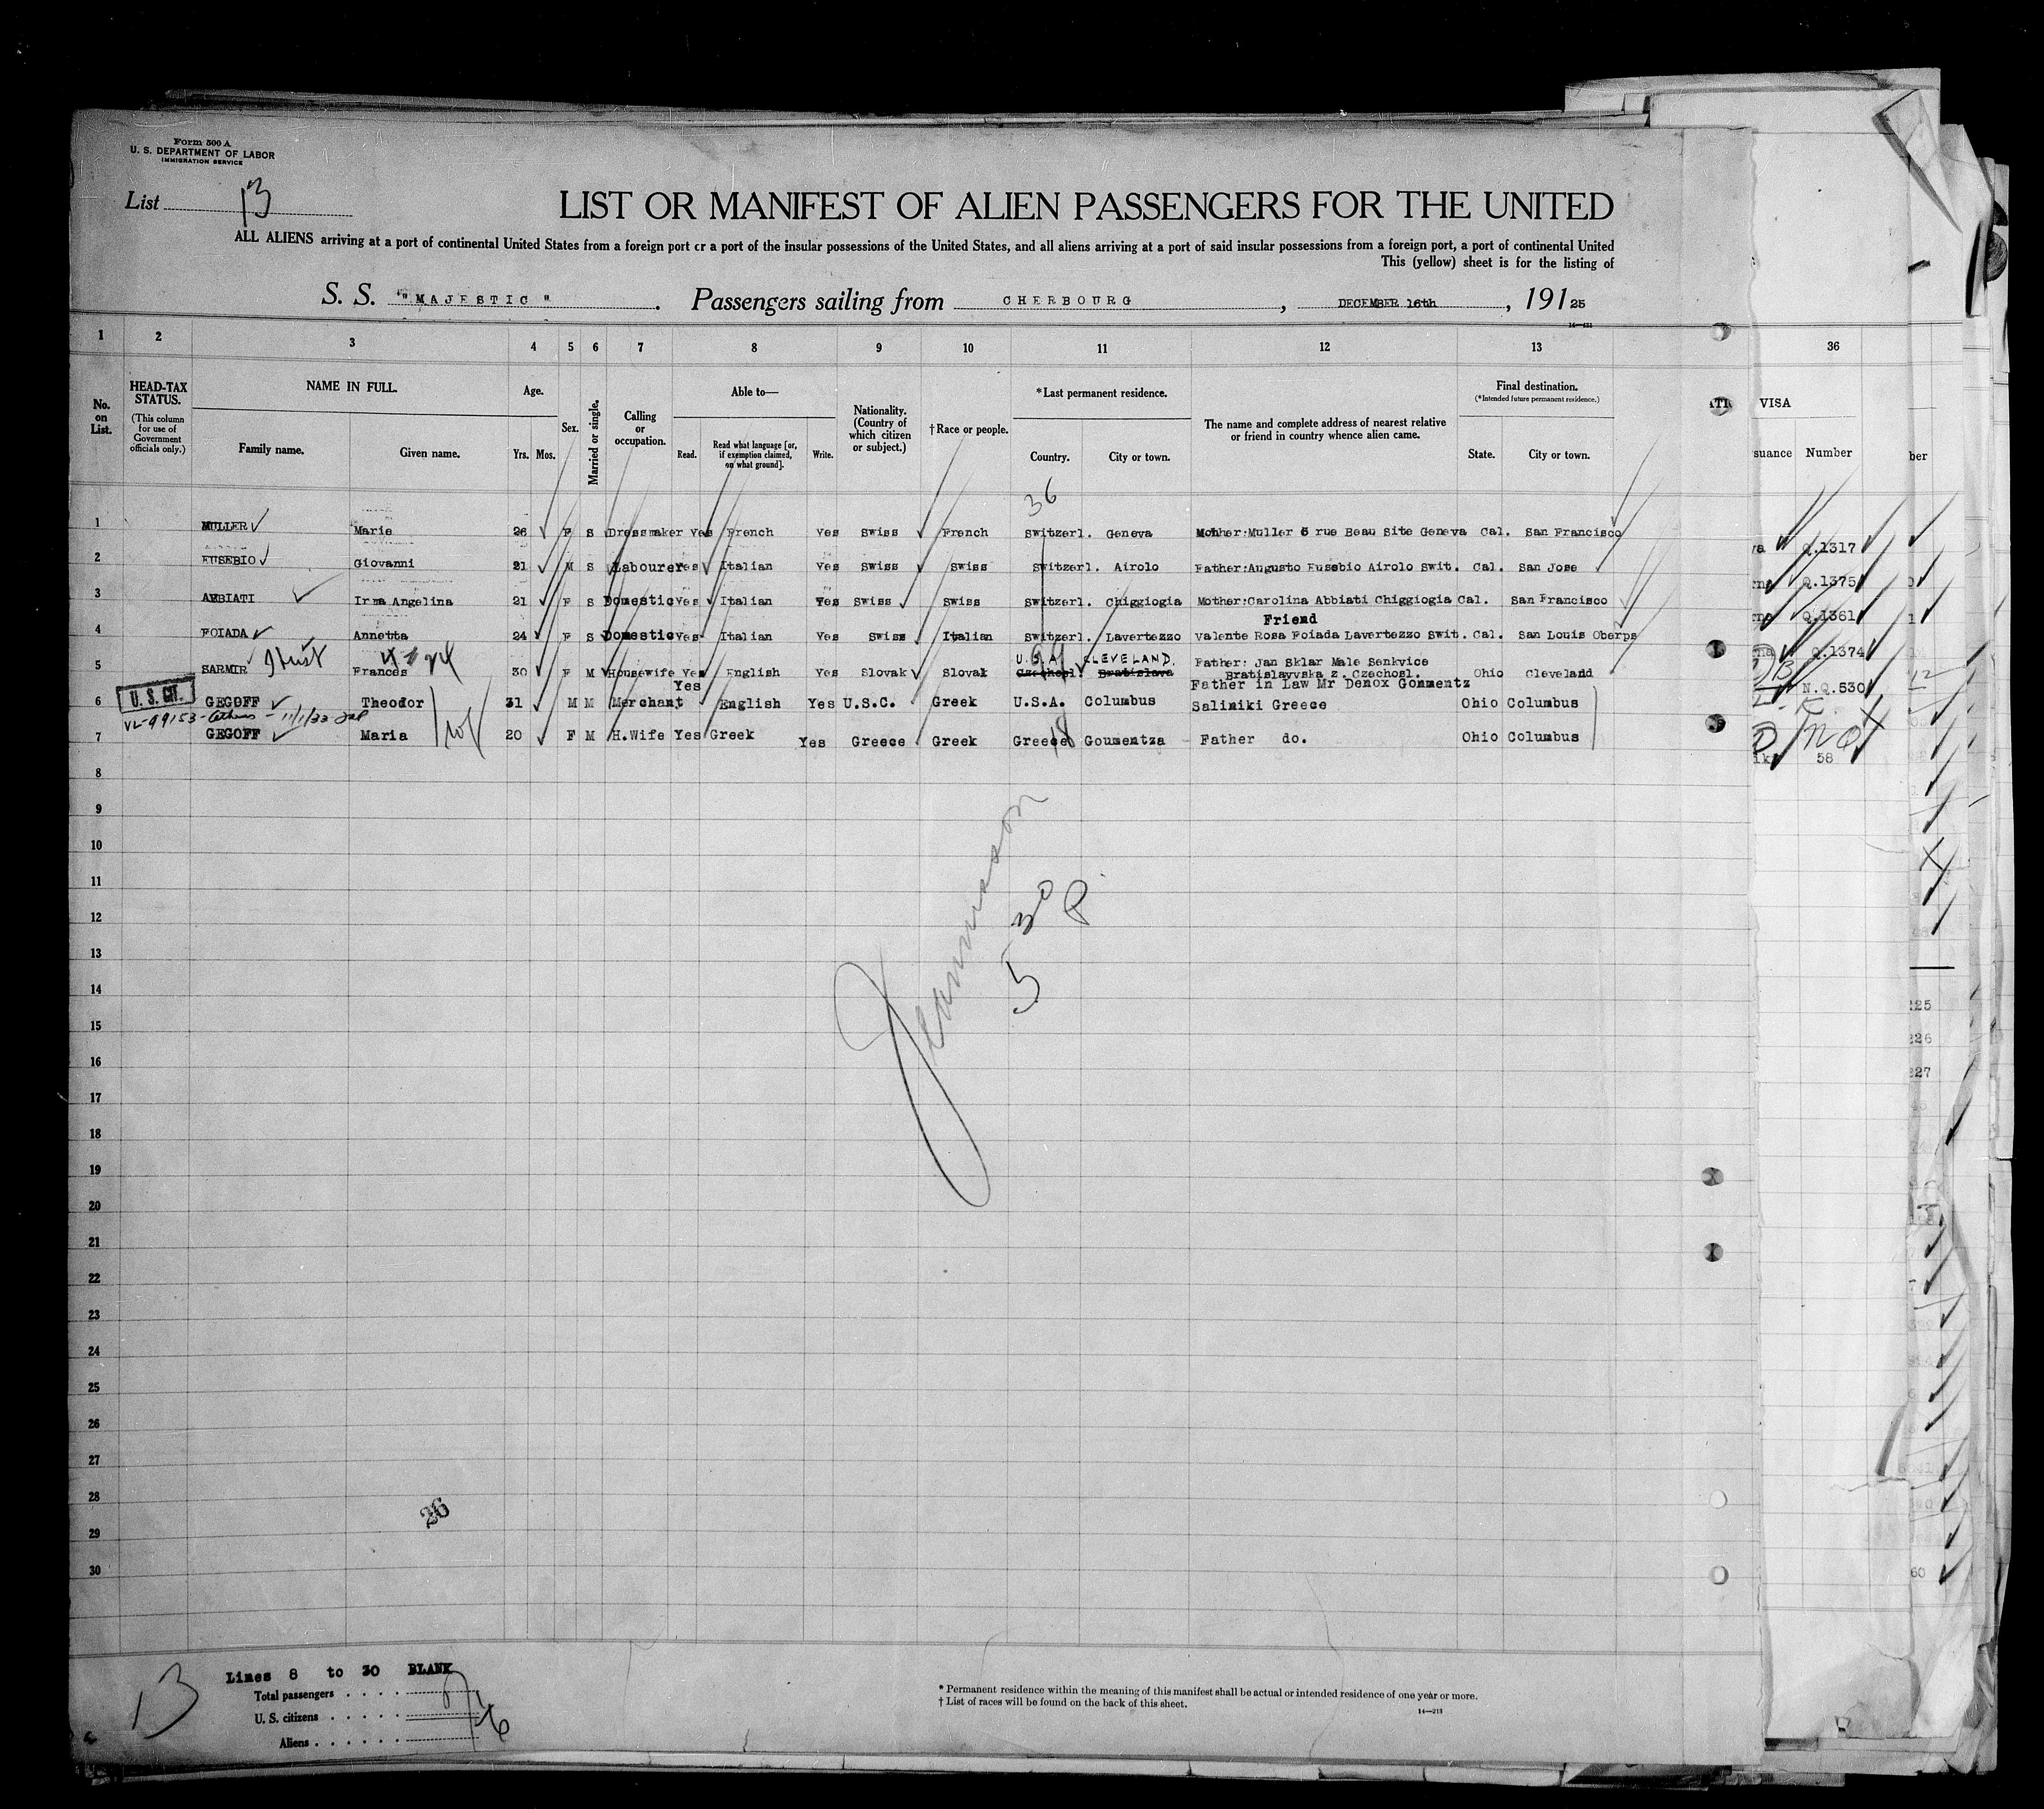 Form 500 A
U. S. DEPARTMENT OF LABOR
IMMIGRATION SERVICE
List 13
LIST OR MANIFEST OF ALIEN PASSENGERS FOR THE UNITED
ALL ALIENS arriving at a port of continental United States from a foreign port or a port of the insular possessions of the United States, and all aliens arriving at a port of said insular possessions from a foreign port, a port of continental United
This (yellow) sheet is for the listing of
S. S. "MAJESTIC". Passengers sailing from CHERBOURG, DECEMBER 16th, 191 25
14—421
1 2 3 4 5 6 7 8 9 10 11 12 13 36
No. on List.
HEAD-TAX STATUS.
(This column for use of Government officials only.)
NAME IN FULL.
Family name. Given name.
Age.
Yrs. Mos.
Sex.
Married or single.
Calling or occupation.
Able to—
Read. Read what language [or, if exemption claimed, on what ground]. Write.
Nationality. (Country of which citizen or subject.)
†Race or people.
*Last permanent residence.
Country. City or town.
The name and complete address of nearest relative or friend in country whence alien came.
Final destination.
(*Intended future permanent residence.)
State. City or town.
VISA
suance Number
ber
36
1 MULLER Marie 26 F S Dressmaker Yes French Yes Swiss French Switzerl. Geneva Mother:Muller 6 rue Beau Site Geneva Cal. San Francisco Q.1317
2 EUSEBIO Giovanni 21 M S Labourer Yes Italian Yes Swiss Swiss Switzerl. Airolo Father:Augusto Eusebio Airolo Swit. Cal. San Jose Q.1375
3 ABBIATI Irma Angelina 21 F S Domestic Yes Italian Yes Swiss Swiss Switzerl. Chiggiogia Mother:Carolina Abbiati Chiggiogia Cal. San Francisco Q.1361
Friend
4 FOIADA Annetta 24 F S Domestic Yes Italian Yes Swiss Italian Switzerl. Lavertezzo Valente Rosa Foiada Lavertezzo Swit. Cal. San Louis Oberps Q.1374
U.S.A. CLEVELAND.
5 SARMIR Frances 30 F M Housewife Yes English Yes Slovak Slovak Czechosl. Bratislava Father: Jan Sklar Male Senkvice Ohio Cleveland N.Q.530
Bratislavvska z. Czechosl.
U. S. CIT.
Father in Law Mr Denox Gonmentz
6 GEGOFF Theodor 31 M M Merchant Yes English Yes U.S.C. Greek U.S.A. Columbus Saliniki Greece Ohio Columbus
VL-99153-Athens-11/1/33
7 GEGOFF Maria 20 F M H.Wife Yes Greek Yes Greece Greek Greece Goumentza Father do. Ohio Columbus NQ
58
8
9
10
11
12
13
14
15
16
17
18
19
20
21
22
23
24
25
26
27
28
29
30
5 30 P
26
225
226
227
60
13
Lines 8 to 30 BLANK
Total passengers
U. S. citizens
Aliens
* Permanent residence within the meaning of this manifest shall be actual or intended residence of one year or more.
† List of races will be found on the back of this sheet.
14—213